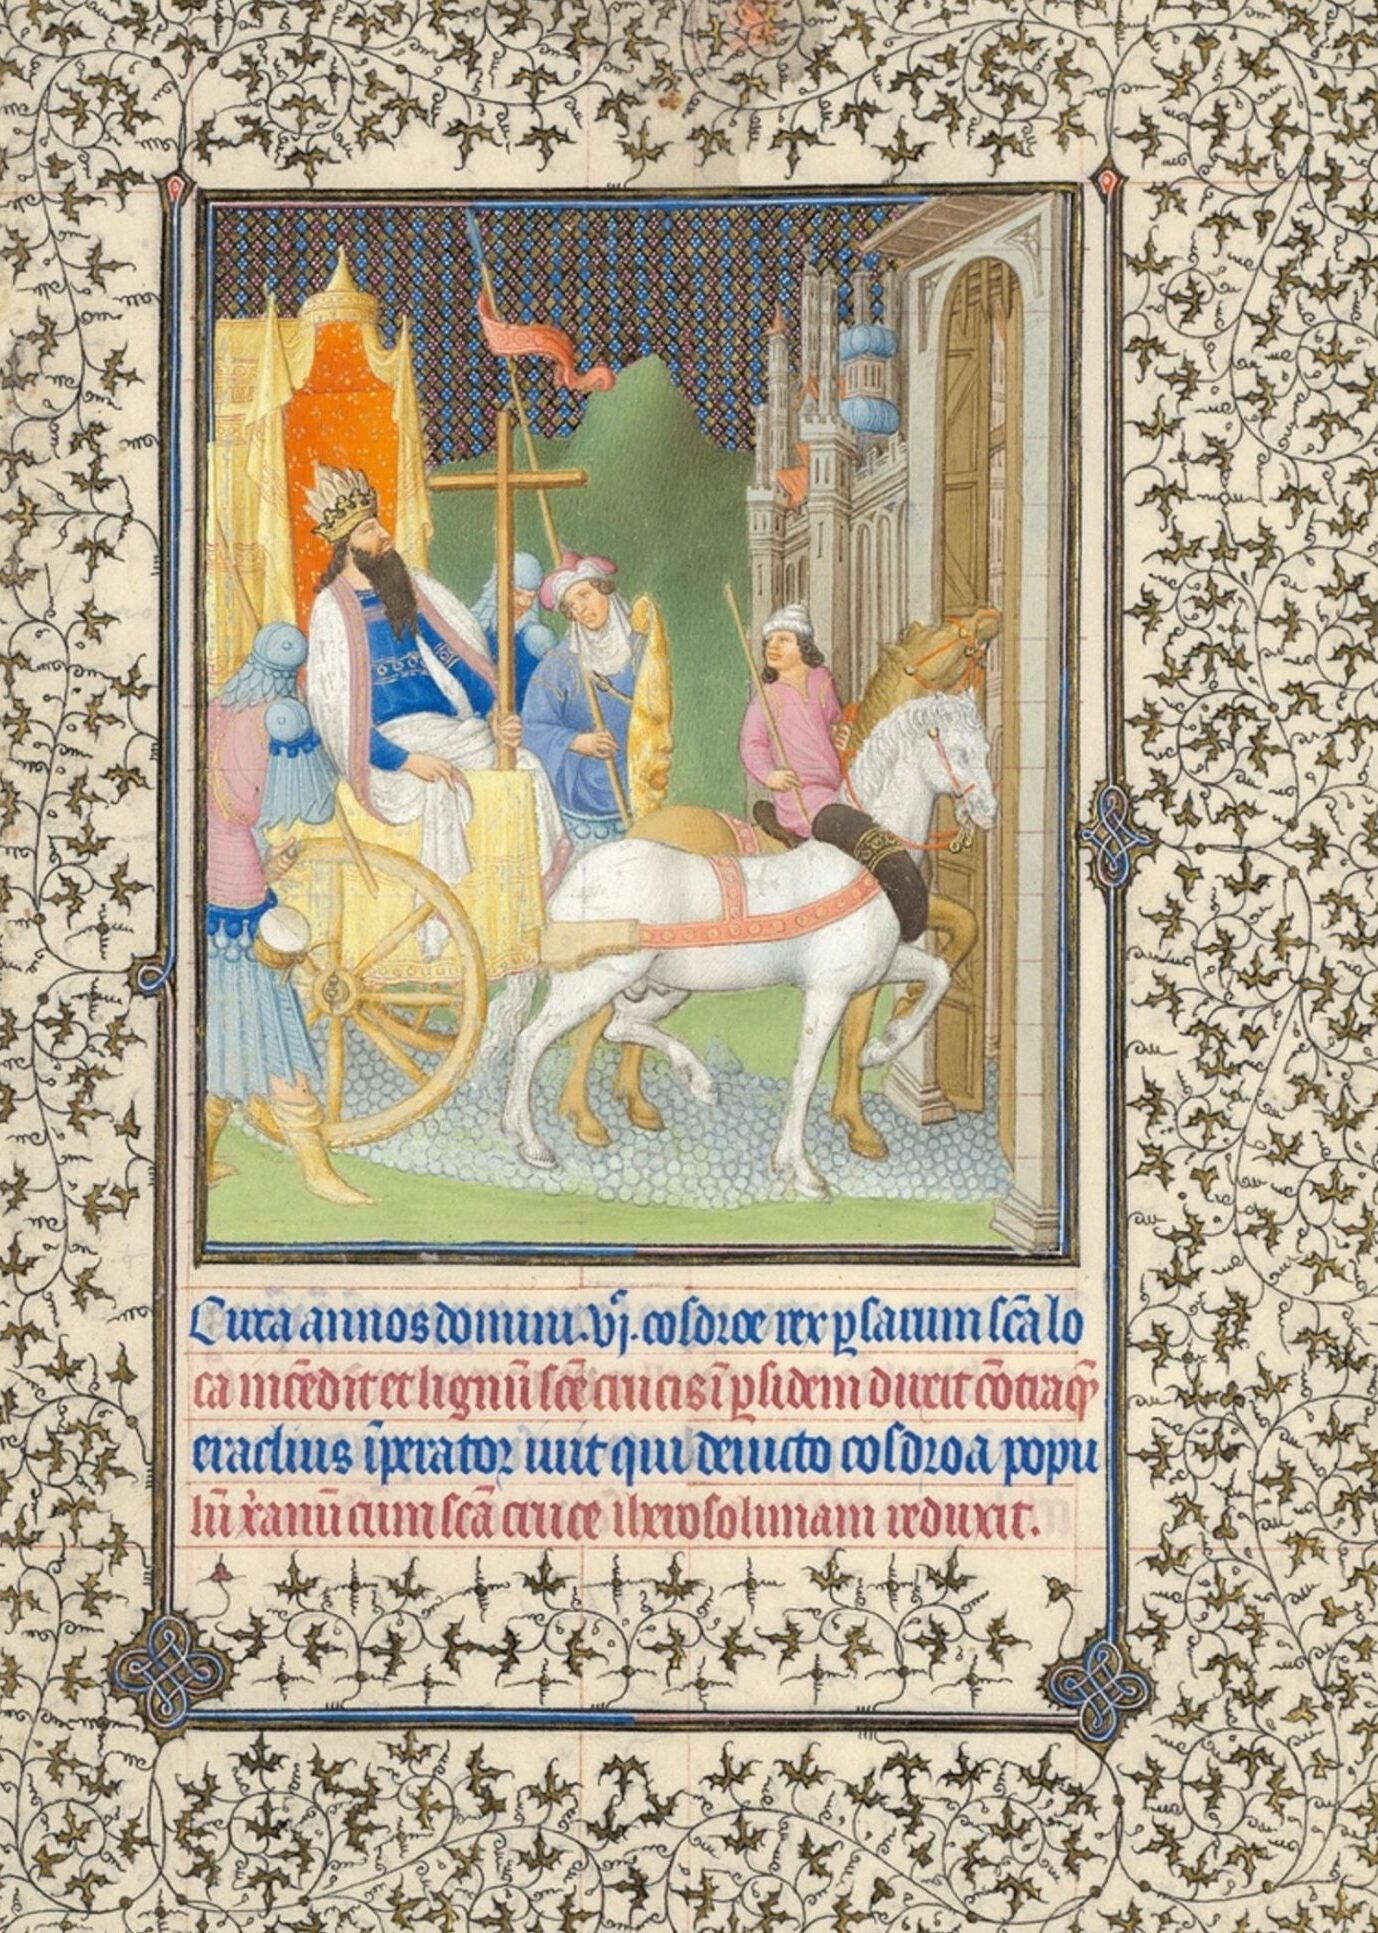 Circa annos domini .vjͨ. cosdroe rex ꝑsarum scā lo
ca incēdit et lignū scē crucis ī ꝑsidem duxit cōtra qē
eraclius īperator iuit qui deuicto cosdroa popu
lū xp̄anū cum scā cruce iherosolimam reduxit.